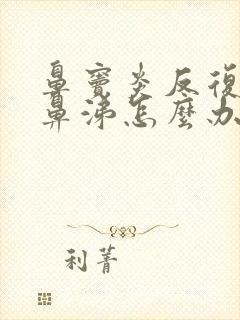 鼻竇炎反復
鼻涕怎麼办
利菁